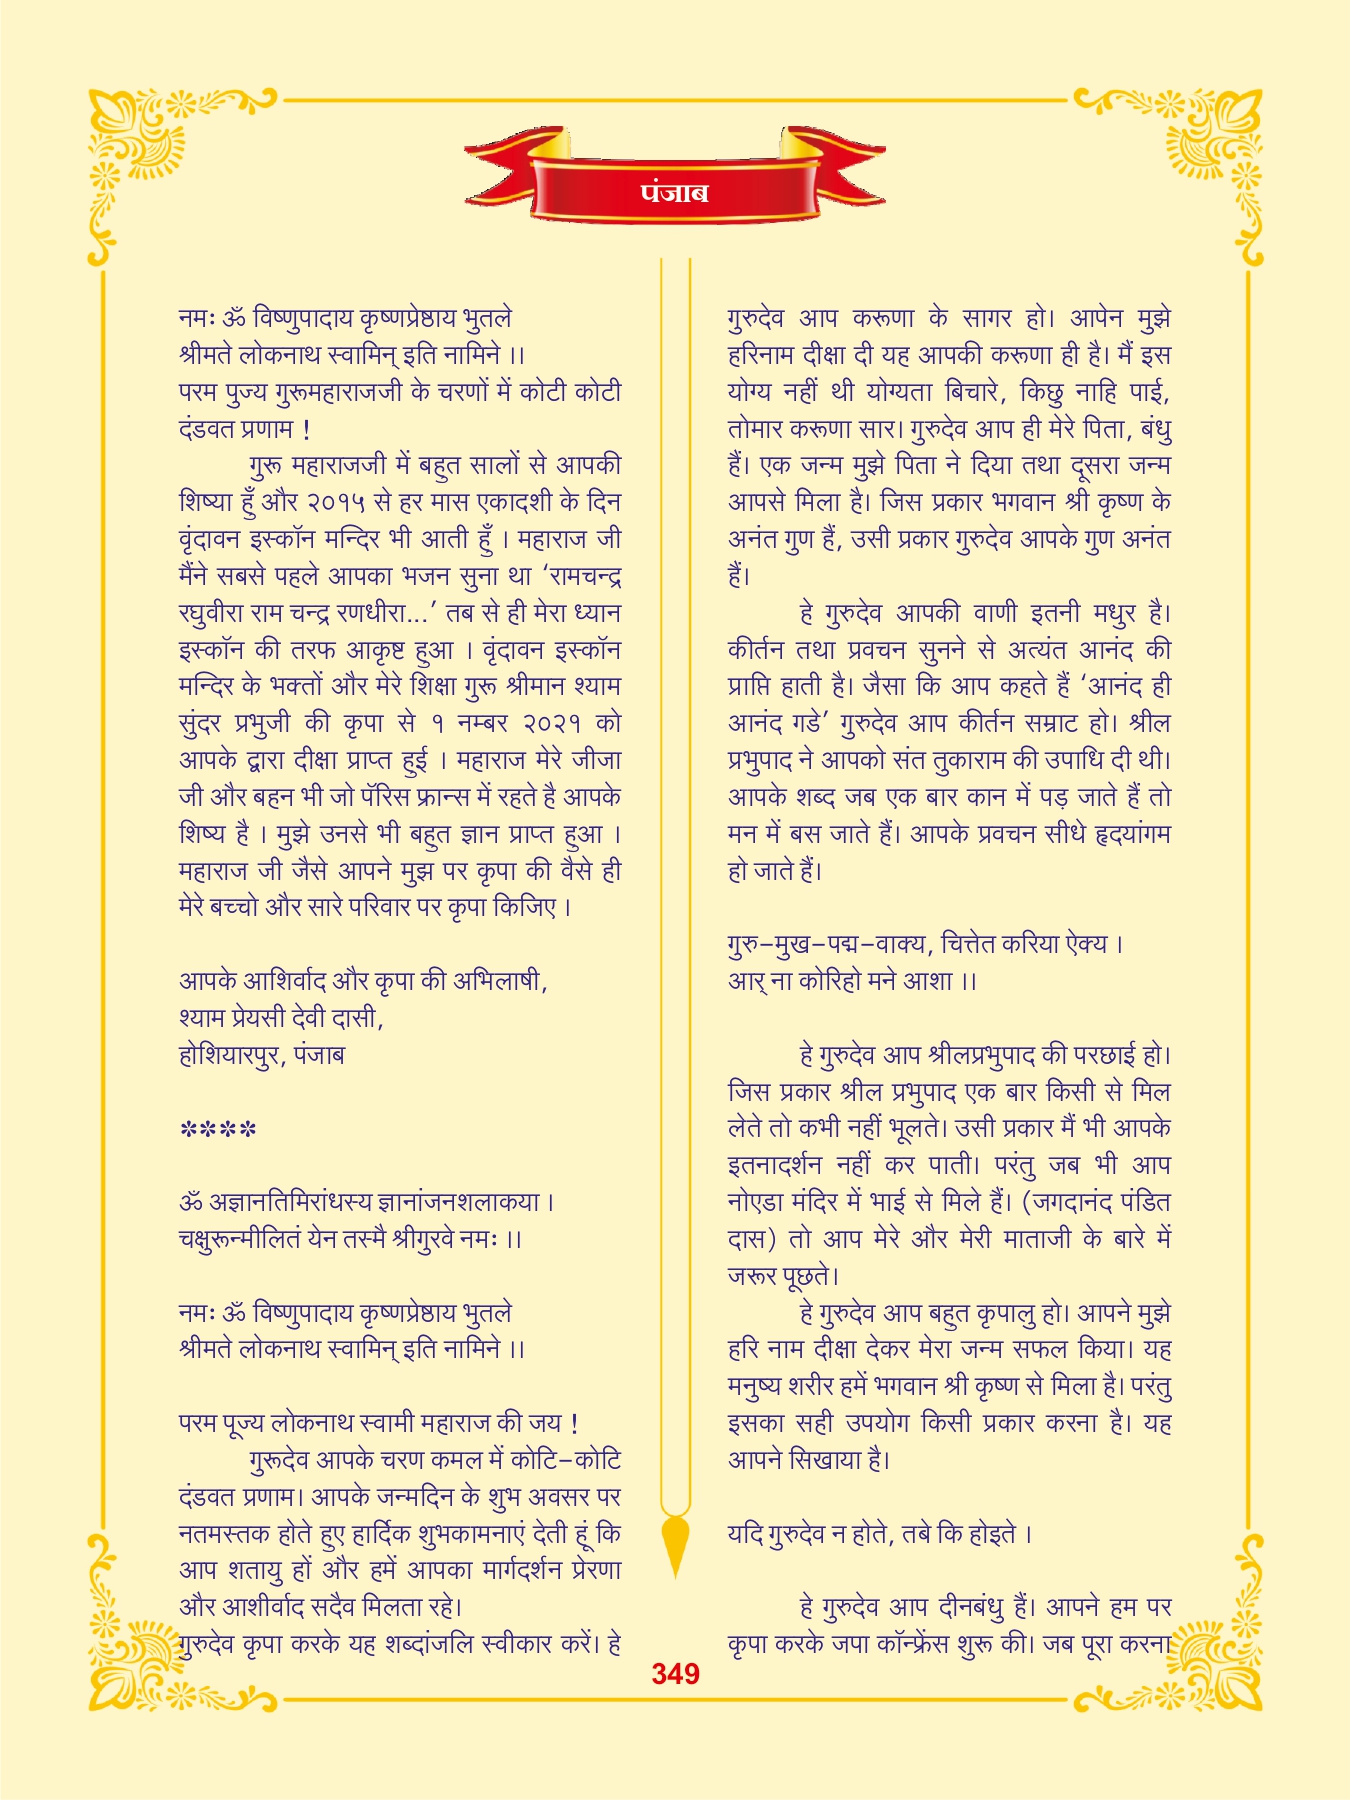 पंजाब
नमः ॐ विष्णुपादाय कृष्णप्रेष्ठाय भुतले
श्रीमते लोकनाथ स्वामिन् इति नामिने ।।
परम पुज्य गुरूमहाराजजी के चरणों में कोटी कोटी
दंडवत प्रणाम !
गुरू महाराजजी में बहुत सालों से आपकी
शिष्या हुँ और २०१५ से हर मास एकादशी के दिन
वृंदावन इस्कॉन मन्दिर भी आती हुँ । महाराज जी
मैंने सबसे पहले आपका भजन सुना था ‘रामचन्द्र
रघुवीरा राम चन्द्र रणधीरा...’ तब से ही मेरा ध्यान
इस्कॉन की तरफ आकृष्ट हुआ । वृंदावन इस्कॉन
मन्दिर के भक्तों और मेरे शिक्षा गुरू श्रीमान श्याम
सुंदर प्रभुजी की कृपा से १ नम्बर २०२१ को
आपके द्वारा दीक्षा प्राप्त हुई । महाराज मेरे जीजा
जी और बहन भी जो पॅरिस फ्रान्स में रहते है आपके
शिष्य है । मुझे उनसे भी बहुत ज्ञान प्राप्त हुआ ।
महाराज जी जैसे आपने मुझ पर कृपा की वैसे ही
मेरे बच्चो और सारे परिवार पर कृपा किजिए ।
आपके आशिर्वाद और कृपा की अभिलाषी,
श्याम प्रेयसी देवी दासी,
होशियारपुर, पंजाब
****
ॐ अज्ञानतिमिरांधस्य ज्ञानांजनशलाकया ।
चक्षुरून्मीलितं येन तस्मै श्रीगुरवे नमः ।।
नमः ॐ विष्णुपादाय कृष्णप्रेष्ठाय भुतले
श्रीमते लोकनाथ स्वामिन् इति नामिने ।।
परम पूज्य लोकनाथ स्वामी महाराज की जय !
गुरूदेव आपके चरण कमल में कोटि-कोटि
दंडवत प्रणाम। आपके जन्मदिन के शुभ अवसर पर
नतमस्तक होते हुए हार्दिक शुभकामनाएं देती हूं कि
आप शतायु हों और हमें आपका मार्गदर्शन प्रेरणा
और आशीर्वाद सदैव मिलता रहे।
गुरुदेव कृपा करके यह शब्दांजलि स्वीकार करें। हे
गुरुदेव आप करूणा के सागर हो। आपेन मुझे
हरिनाम दीक्षा दी यह आपकी करूणा ही है। मैं इस
योग्य नहीं थी योग्यता बिचारे, किछु नाहि पाई,
तोमार करूणा सार। गुरुदेव आप ही मेरे पिता, बंधु
हैं। एक जन्म मुझे पिता ने दिया तथा दूसरा जन्म
आपसे मिला है। जिस प्रकार भगवान श्री कृष्ण के
अनंत गुण हैं, उसी प्रकार गुरुदेव आपके गुण अनंत
हैं।
हे गुरुदेव आपकी वाणी इतनी मधुर है।
कीर्तन तथा प्रवचन सुनने से अत्यंत आनंद की
प्राप्ति हाती है। जैसा कि आप कहते हैं ‘आनंद ही
आनंद गडे’ गुरुदेव आप कीर्तन सम्राट हो। श्रील
प्रभुपाद ने आपको संत तुकाराम की उपाधि दी थी।
आपके शब्द जब एक बार कान में पड़ जाते हैं तो
मन में बस जाते हैं। आपके प्रवचन सीधे हृदयांगम
हो जाते हैं।
गुरु-मुख-पद्म-वाक्य, चित्तेत करिया ऐक्य ।
आर् ना कोरिहो मने आशा ।।
हे गुरुदेव आप श्रीलप्रभुपाद की परछाई हो।
जिस प्रकार श्रील प्रभुपाद एक बार किसी से मिल
लेते तो कभी नहीं भूलते। उसी प्रकार मैं भी आपके
इतनादर्शन नहीं कर पाती। परंतु जब भी आप
नोएडा मंदिर में भाई से मिले हैं। (जगदानंद पंडित
दास) तो आप मेरे और मेरी माताजी के बारे में
जरूर पूछते।
हे गुरुदेव आप बहुत कृपालु हो। आपने मुझे
हरि नाम दीक्षा देकर मेरा जन्म सफल किया। यह
मनुष्य शरीर हमें भगवान श्री कृष्ण से मिला है। परंतु
इसका सही उपयोग किसी प्रकार करना है। यह
आपने सिखाया है।
यदि गुरुदेव न होते, तबे कि होइते ।
हे गुरुदेव आप दीनबंधु हैं। आपने हम पर
कृपा करके जपा कॉन्फ्रेंस शुरू की। जब पूरा करना
349